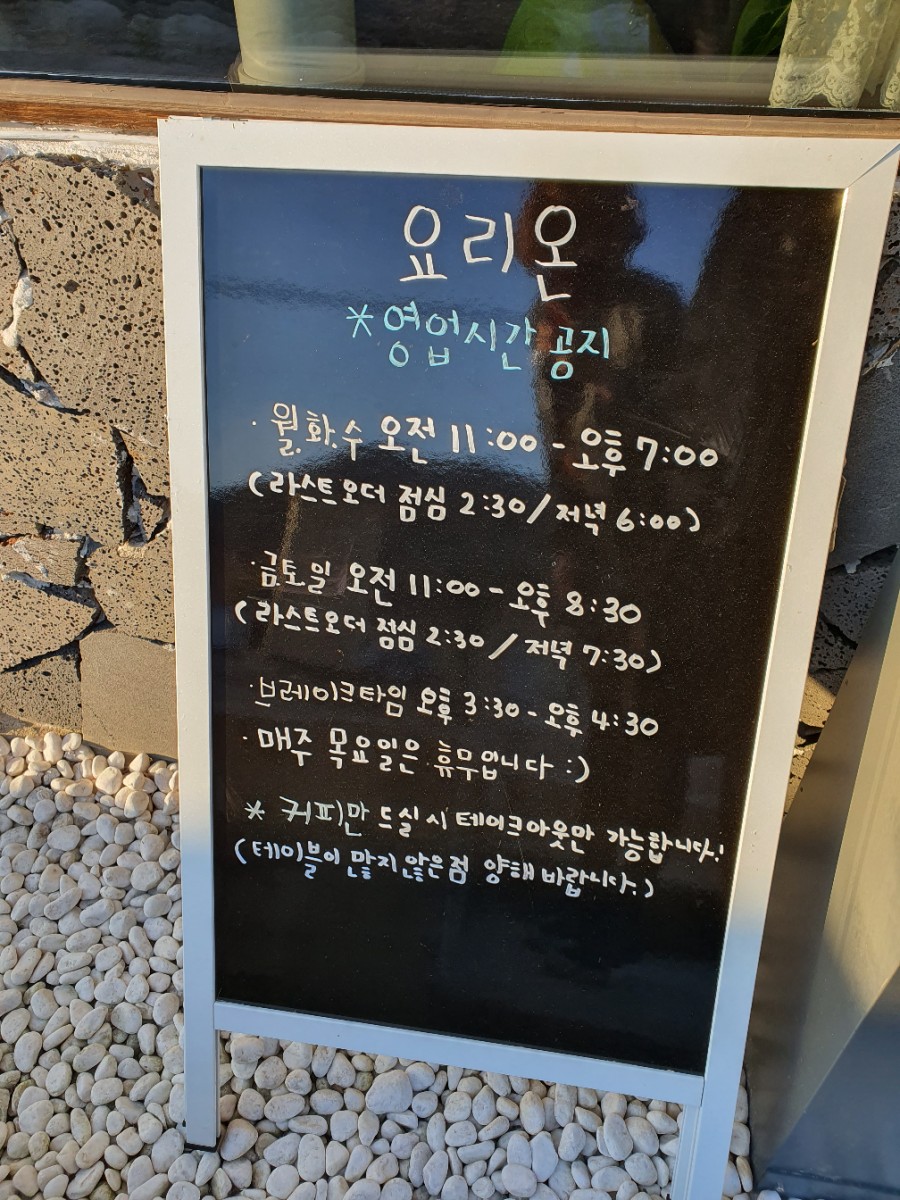 요리온
*영업시간 공지
· 월.화.수 오전 11:00 - 오후 7:00
(라스트오더 점심 2:30/저녁 6:00)
· 금.토.일 오전 11:00 - 오후 8:30
(라스트오더 점심 2:30 / 저녁 7:30)
· 브레이크타임 오후 3:30 - 오후 4:30
· 매주 목요일은 휴무입니다 :)
* 커피만 드실 시 테이크아웃만 가능합니다!
(테이블이 많지 않은점 양해 바랍니다.)